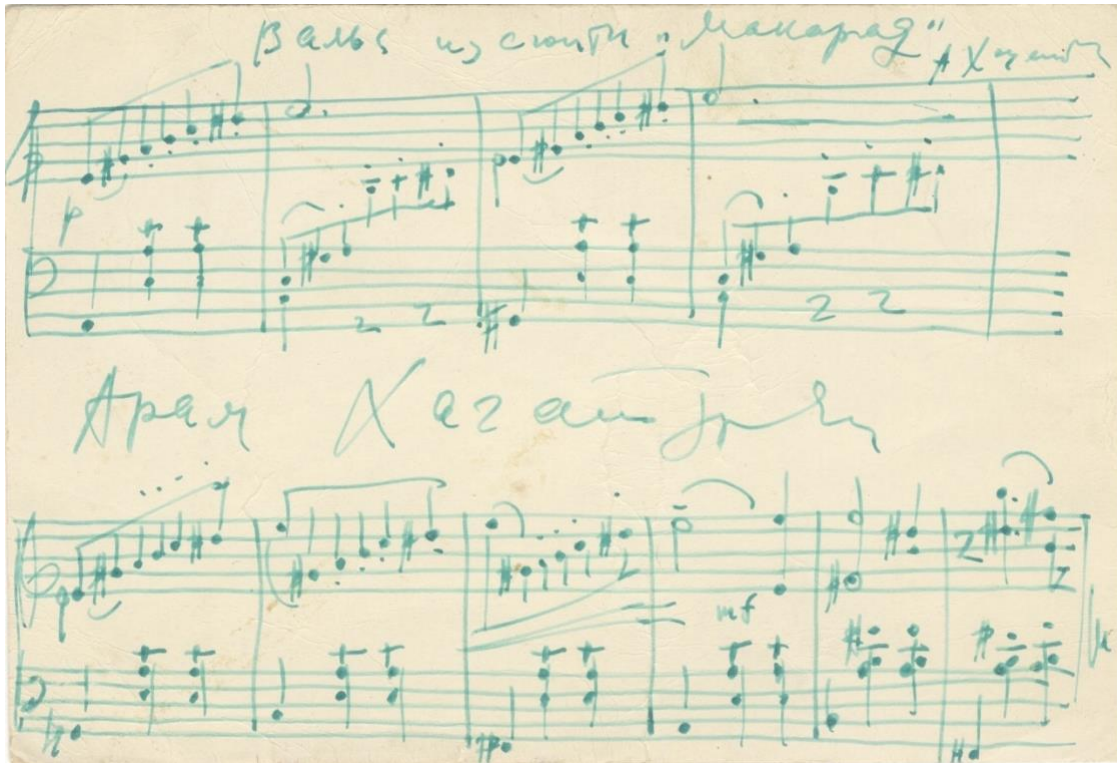 Вальс из сюиты „Макарад"
А Хачат
p
Арам Хачатурян
mf